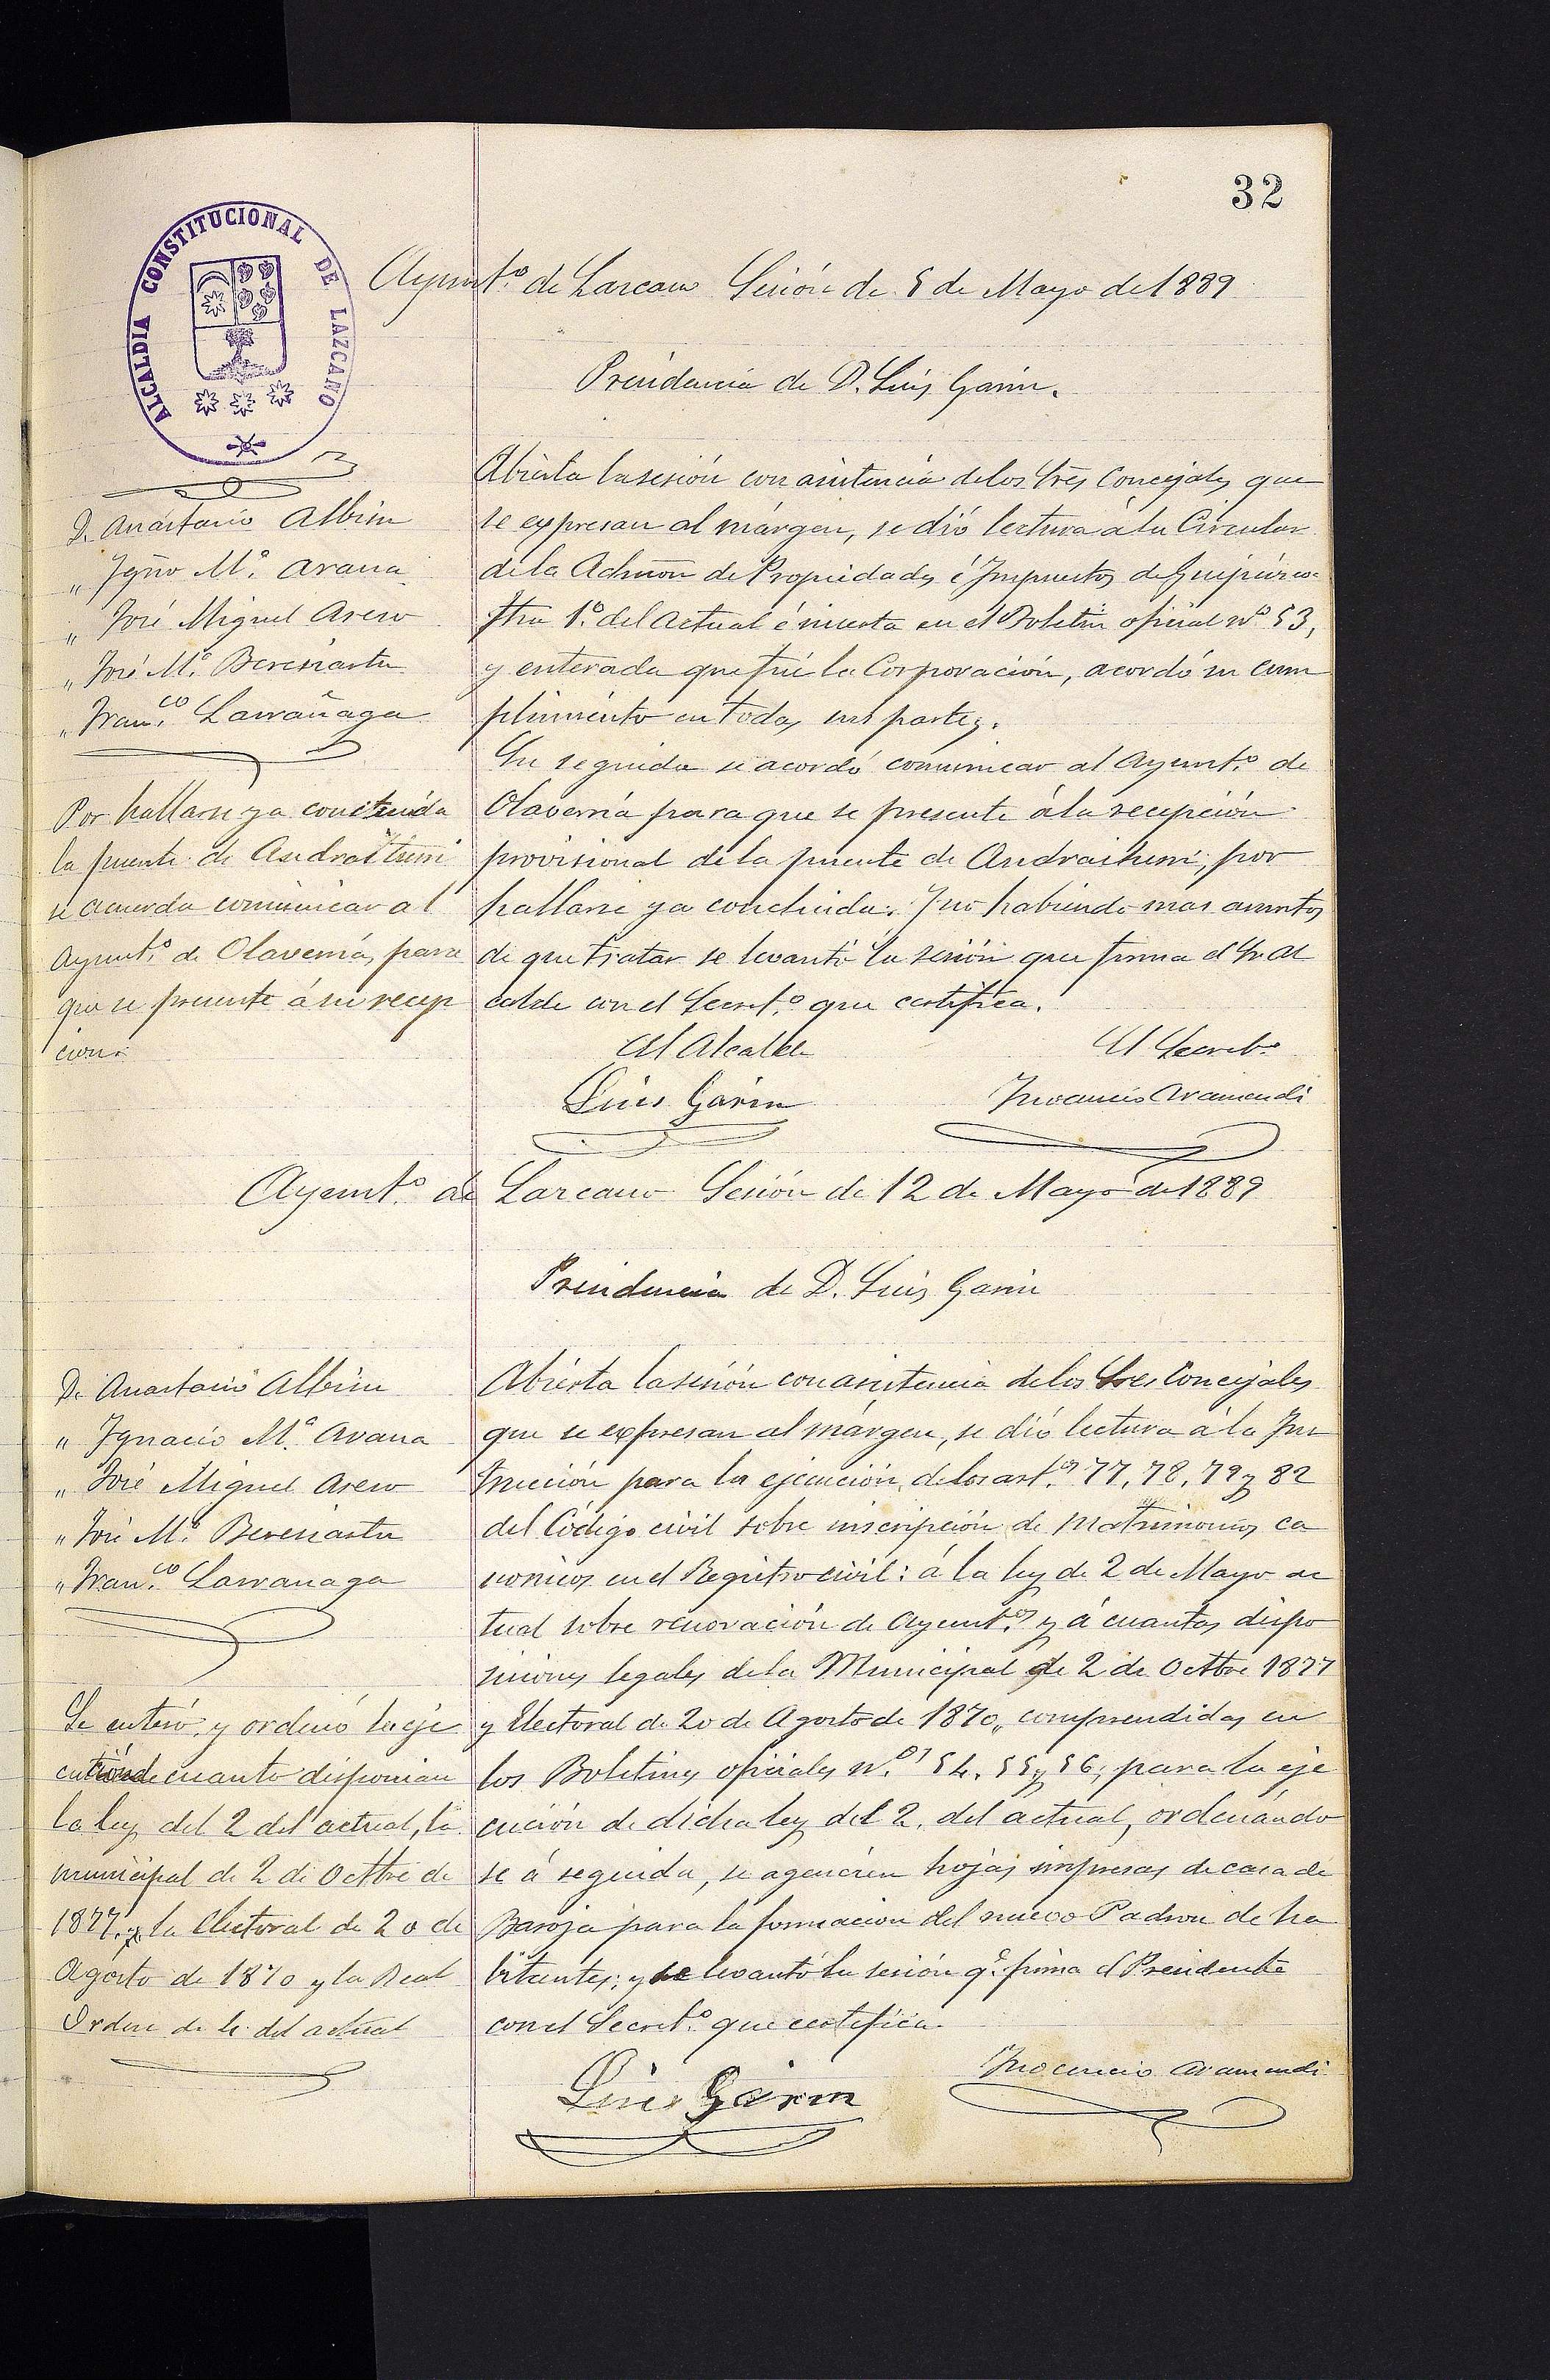 32
ALCALDIA CONSTITUCIONAL DE LAZCANO
Ayunt.º de Lazcano Sesión de 5 de Mayo de 1889
Presidencia de D. Luis Garin.
D. Anastasio Albisu
" Ygño M.ª Arana
" José Miguel Aseso
" José M.ª Beresiartu
" Fran.co Larrañaga
Por hallarse ya concluida
la puente de Andraiturri
se acuerda comunicar al
Ayunt.º de Olaverría, para
que se presente á su recep
cion.
Abierta la sesión con asistencia de los Sres Concejales que
se expresan al márgen, se dió lectura á la Circular
de la Admon de Propiedades é Impuestos de Guipúzcoa
fha 1.º del actual é inserta en el Boletin oficial nº 53,
y enterada que fué la Corporación, acordó su cum
plimiento en todas sus partes.
En seguida se acordó comunicar al Ayunt.º de
Olaverría para que se presente á la recepción
provisional de la puente de Andraiturri, por
hallarse ya concluida. Y no habiendo mas asuntos
de que tratar se levantó la sesión que firma el Sr. Al
calde con el Secret.º que certifica.
El Alcalde El Secret.º
Luis Garin Inocencio Aramendi
Ayunt.º de Lazcano Sesión de 12 de Mayo de 1889
Presidencia de D. Luis Garin
D. Anastasio Albisu
" Ygnacio M.ª Arana
" José Miguel Aseso
" José M.ª Beresiartu
" Fran.co Larrañaga
Se enteró, y ordenó la eje
cución de cuanto disponian
la ley del 2 del actual, la
municipal de 2 de Octbre de
1877, y la Electoral de 20 de
Agosto de 1870 y la Real
Orden de 4 del actual
Abierta la sesión con asistencia de los Sres Concejales
que se expresan al márgen, se dió lectura á la Ins
trucción para la ejecución de los art.os 77, 78, 79 y 82
del Código civil sobre inscripción de Matrimonios ca
nonicos en el Registro civil: á la ley de 2 de Mayo ac
tual sobre renovación de Ayunt.os y á cuantas dispo
siciones legales de la Municipal de 2 de Octbre 1877
y Electoral de 20 de Agosto de 1870, comprendidas en
los Boletines oficiales n.os 54, 55 y 56; para la eje
cución de dicha ley del 2, del actual, ordenándo
se á seguida, se agencien hojas impresas de casa de
Baroja para la formacion del nuevo Padron de ha
bitantes; y se levantó la sesión q.e firma el Presidente
con el Secret.º que certifica.
Luis Garin Inocencio Aramendi